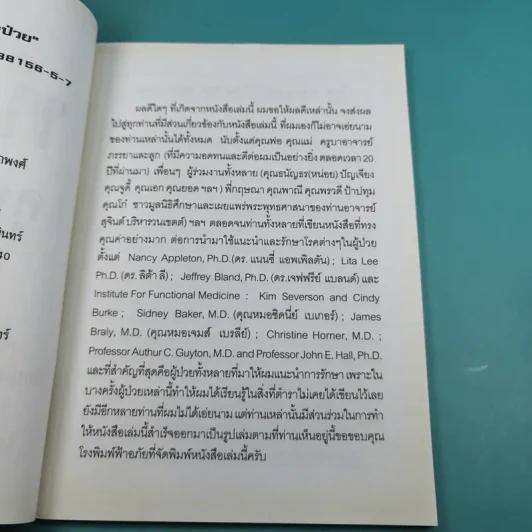 ป่วย"
38156-5-7
กพงศ์
นทร์
40
ทร์
ผลดีใดๆ ที่เกิดจากหนังสือเล่มนี้ ผมขอให้ผลดีเหล่านั้น จงส่งผล
ไปสู่ทุกท่านที่มีส่วนเกี่ยวข้องกับหนังสือเล่มนี้ ที่ผมเองก็ไม่อาจเอ่ยนาม
ของท่านเหล่านั้นได้ทั้งหมด นับตั้งแต่คุณพ่อ คุณแม่ ครูบาอาจารย์
ภรรยาและลูก (ที่มีความอดทนและดีต่อผมเป็นอย่างยิ่ง ตลอดเวลา 20
ปีที่ผ่านมา) เพื่อนๆ ผู้ร่วมงานทั้งหลาย (คุณธนัญธร(หน่อย) ปัญเจียง
คุณจูดี้ คุณเอก คุณยอด ฯลฯ ) พี่กฤษณา คุณพาณี คุณพรวดี ป้าปทุม
คุณโก๋ ชาวมูลนิธิศึกษาและเผยแพร่พระพุทธศาสนาของท่านอาจารย์
สุจินต์ บริหารวนเขตต์) ฯลฯ ตลอดจนท่านทั้งหลายที่เขียนหนังสือที่ทรง
คุณค่าอย่างมาก ต่อการนำมาใช้แนะนำและรักษาโรคต่างๆในผู้ป่วย
ตั้งแต่ Nancy Appleton, Ph.D.(ดร. แนนซี่ แอพเพิลตัน) ; Lita Lee
Ph.D. (ดร. ลิต้า ลี) ; Jeffrey Bland, Ph.D. (ดร.เจฟฟรีย์ แบลนด์) และ
Institute For Functional Medicine : Kim Severson and Cindy
Burke ; Sidney Baker, M.D. (คุณหมอซิดนี่ย์ เบเกอร์) ; James
Braly, M.D. (คุณหมอเจมส์ เบรลีย์) ; Christine Horner, M.D. ;
Professor Authur C. Guyton, M.D. and Professor John E. Hall, Ph.D.
และที่สำคัญที่สุดคือผู้ป่วยทั้งหลายที่มาให้ผมแนะนำการรักษา เพราะใน
บางครั้งผู้ป่วยเหล่านี้ทำให้ผมได้เรียนรู้ในสิ่งที่ตำราไม่เคยได้เขียนไว้เลย
ยังมีอีกหลายท่านที่ผมไม่ได้เอ่ยนาม แต่ท่านเหล่านั้นมีส่วนร่วมในการทำ
ให้หนังสือเล่มนี้สำเร็จออกมาเป็นรูปเล่มตามที่ท่านเห็นอยู่นี้ขอขอบคุณ
โรงพิมพ์ฟ้าอภัยที่จัดพิมพ์หนังสือเล่มนี้ครับ